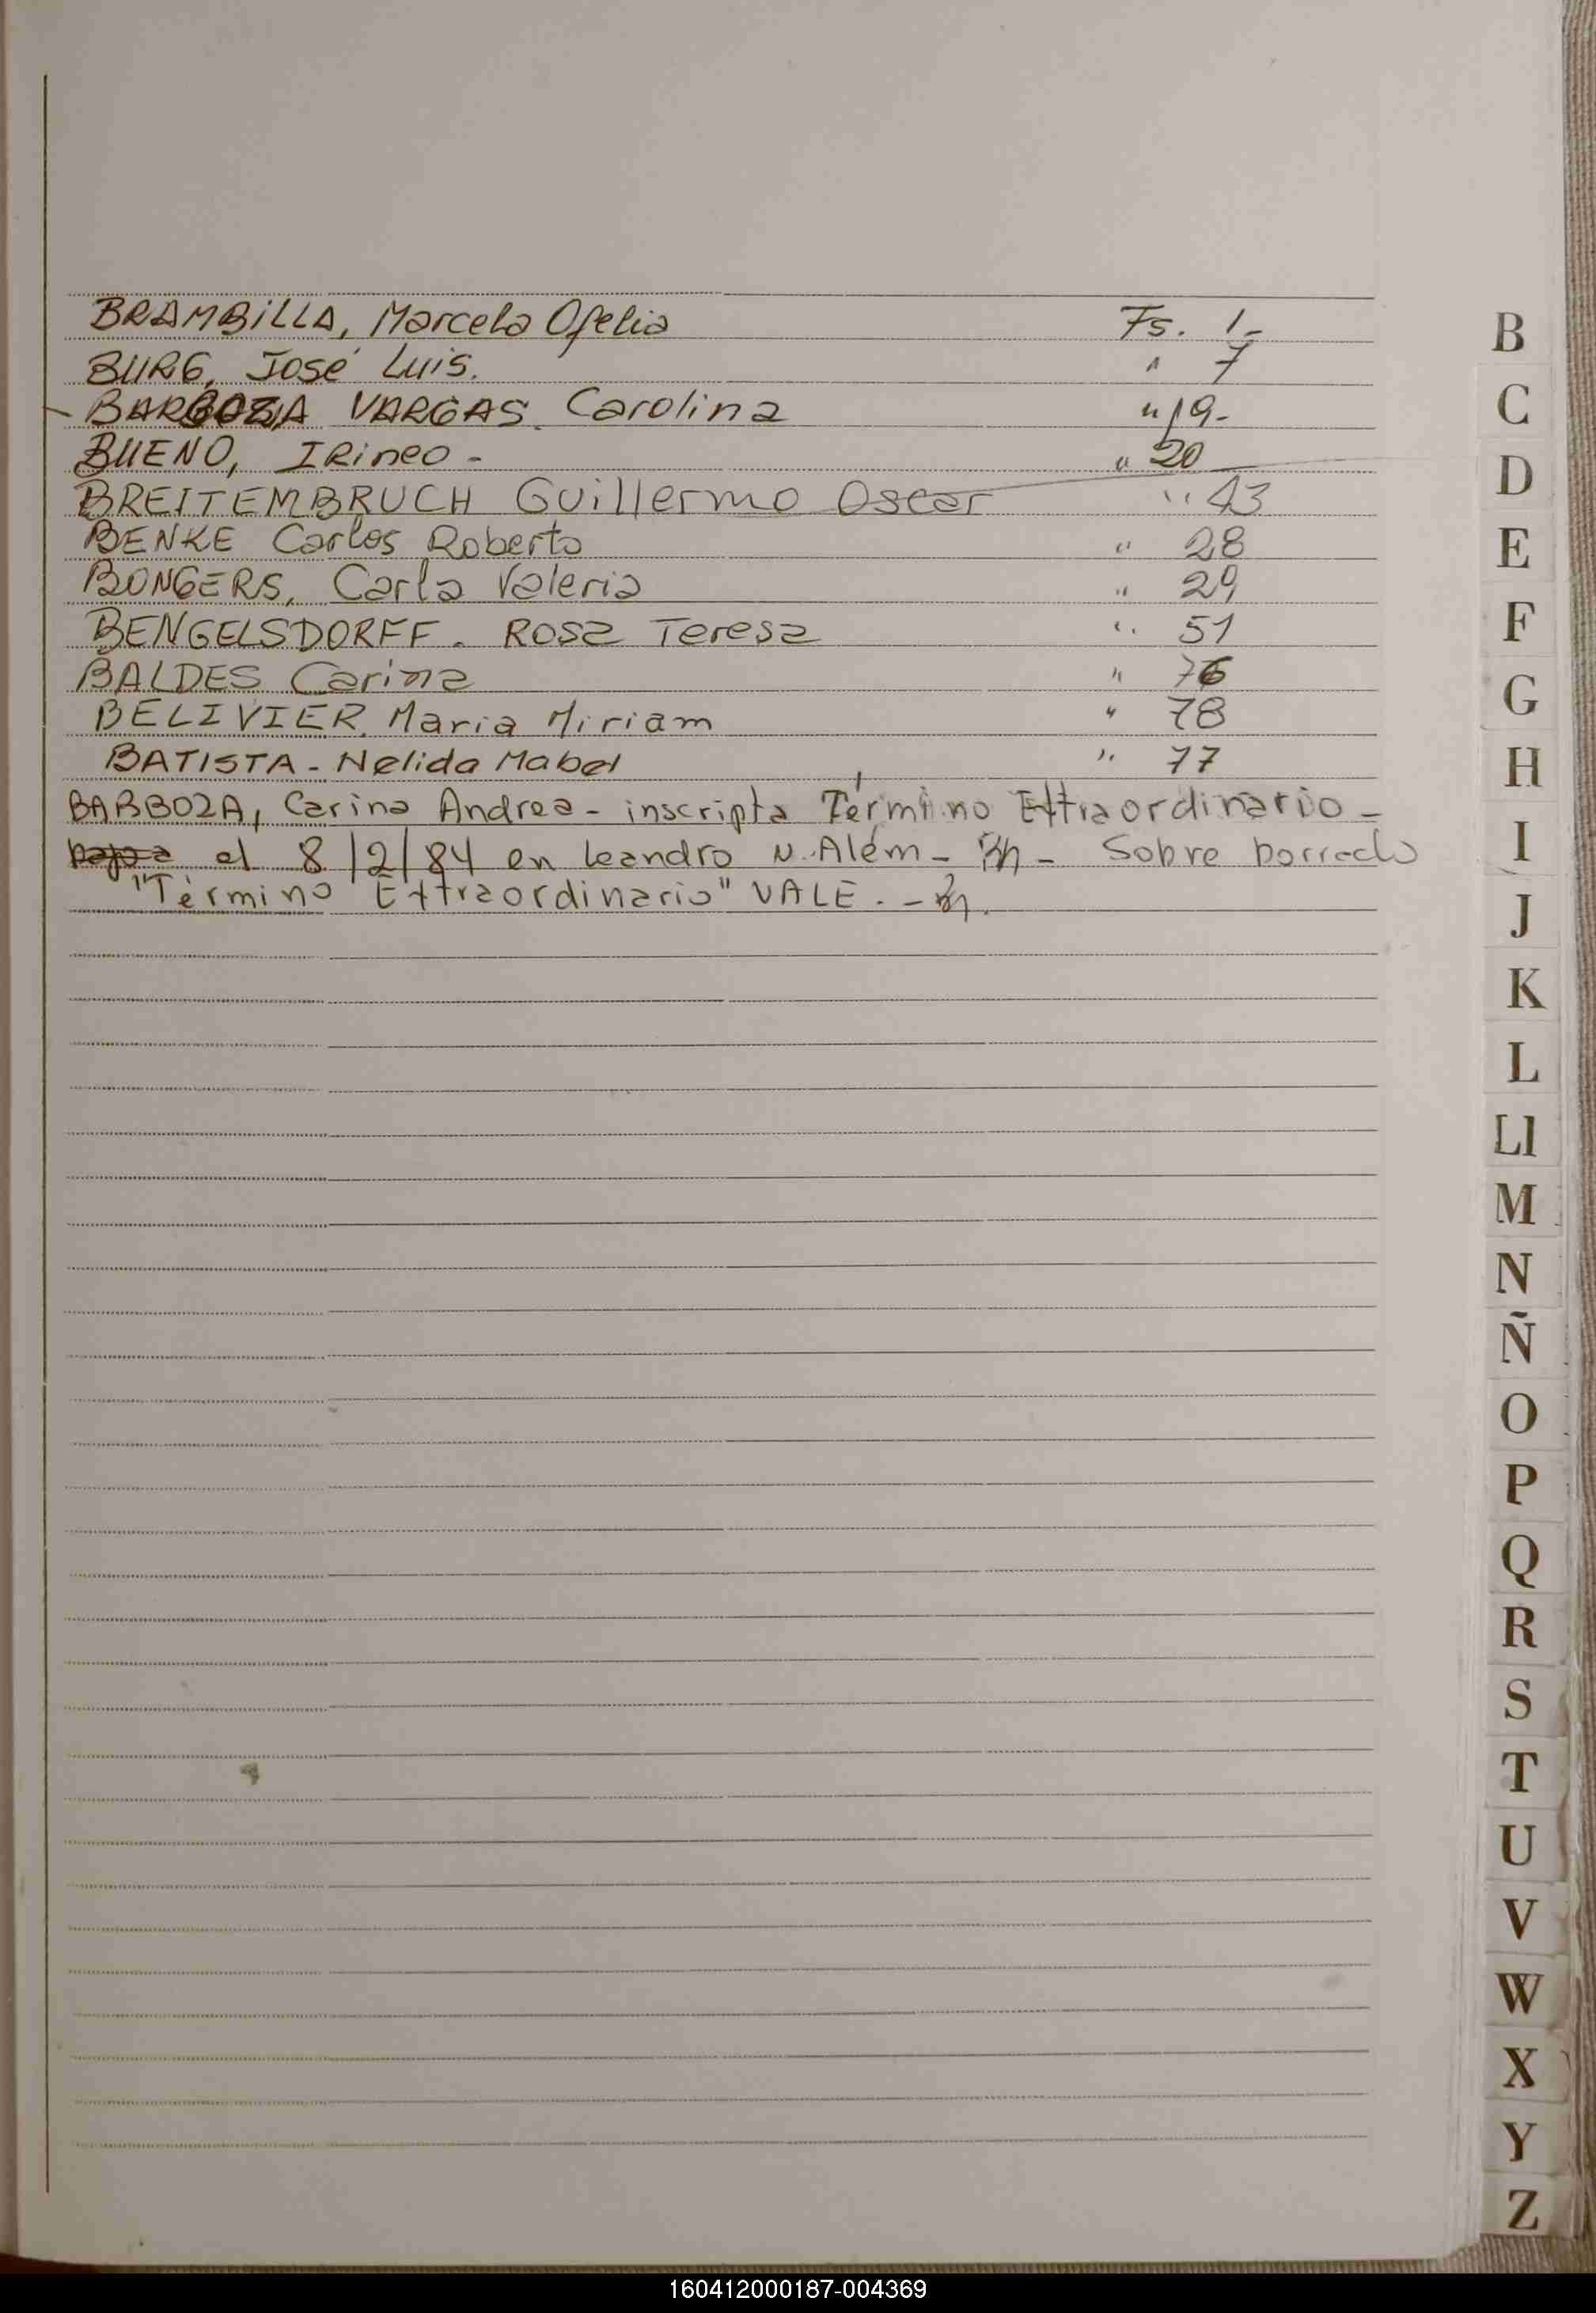 BRAMBILLA, Marcela Ofelia Fs. 1-
BURG, José Luis. " 7
BARBOZA VARGAS. Carolina " 19-
BUENO, IRineo - " 20
BREITEMBRUCH Guillermo Oscar " 43
BENKE Carlos Roberto " 28
BONGERS, Carla Valeria " 29
BENGELSDORFF. ROSa Teresa " 51
BALDES Carina " 76
BELIVIER, Maria Miriam " 78
BATISTA - Nelida Mabel " 77
BARBOZA, Carina Andrea - inscripta Término Extraordinario -
el 8/2/84 en Leandro N. Além - Sobre borrado
"Término Extraordinario" VALE. -
B
C
D
E
F
G
H
I
J
K
L
Ll
M
N
Ñ
O
P
Q
R
S
T
U
V
W
X
Y
Z
160412000187-004369